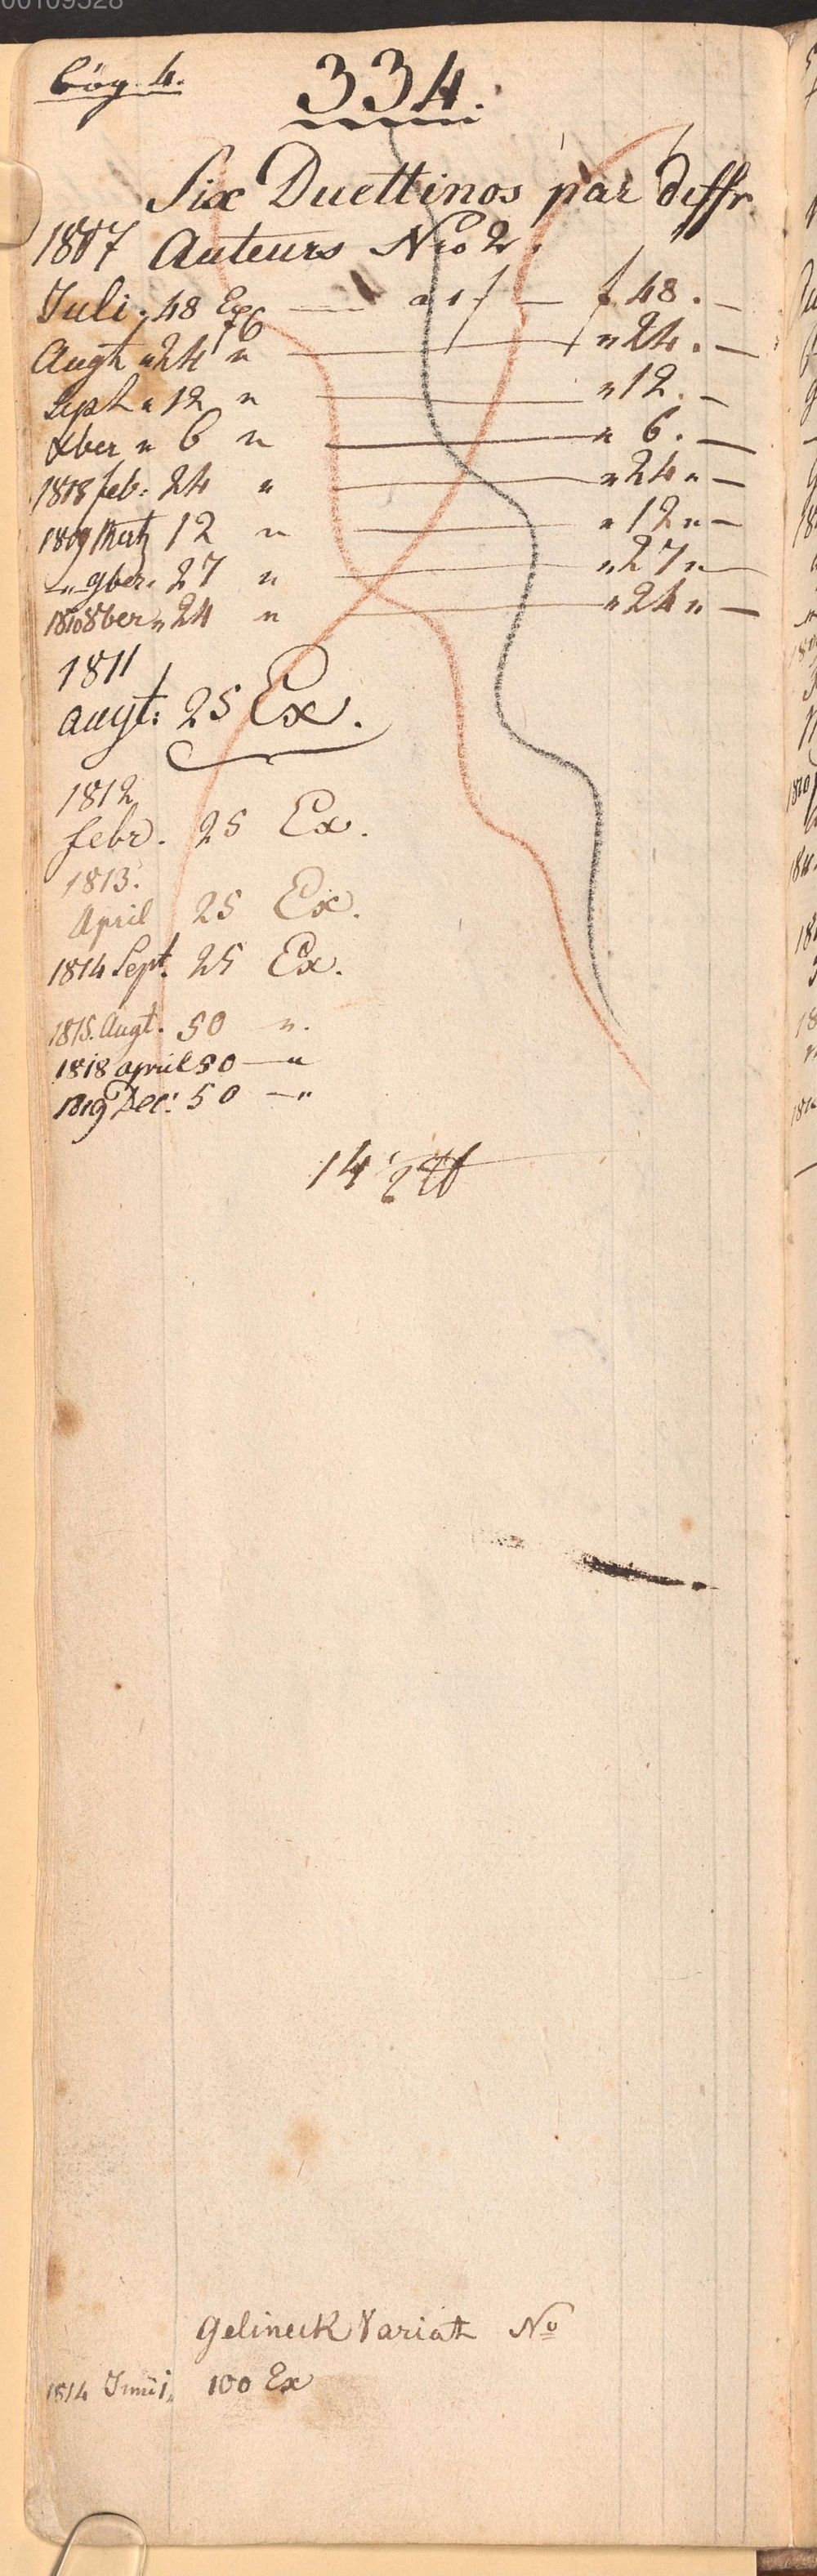 bög. 4.
334.
Six Duettinos par diffr.
1807 Auteurs No 2.
Juli. 48 Ex — a 1 f — f 48. —
Augt " 24 " — " 24. —
Sept " 12 " — " 12. —
Xber " 6 " — " 6. —
1808 feb: 24 " — " 24 " —
1809 Mertz 12 " — " 12 " —
" 9ber. 27 " — " 27 " —
1810 8ber " 24 " — " 24 " —
1811
augt: 25 Ex.
1812
febr. 25 Ex.
1813.
April 25 Ex.
1814 Sept. 25 Ex.
1815. Augt. 50 ".
1818 april 50 — "
1819 Dec: 50 — "
14
Gelineck Variat No
1814 Junii, 100 Ex